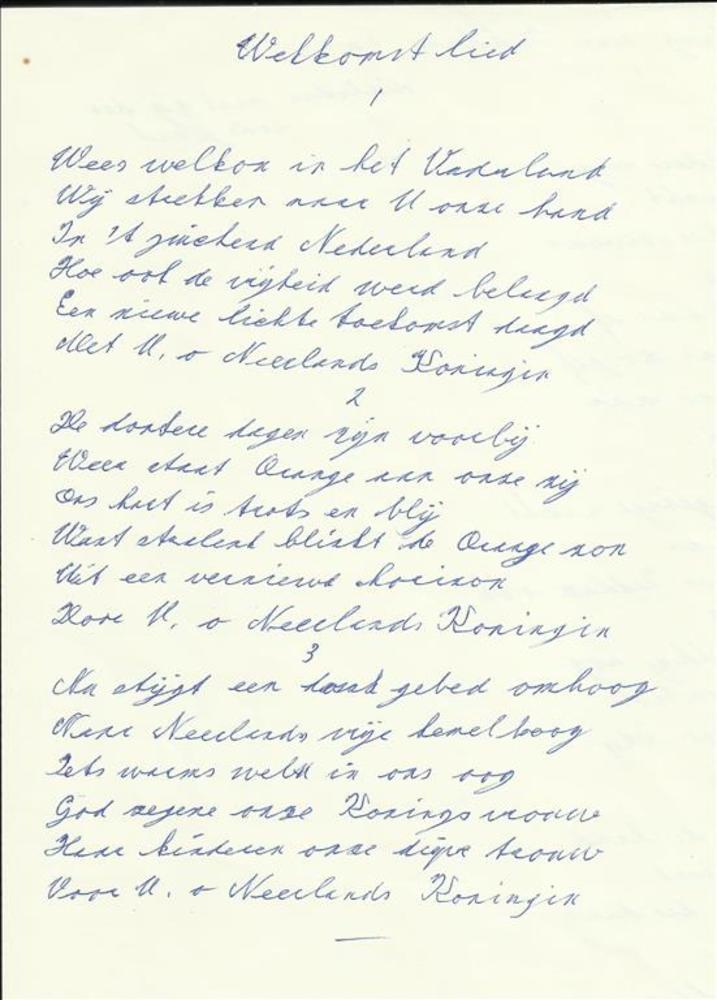 Welkomst lied
1
Wees welkom in het Vaderland
Wij strekken naar U onze hand
In 't juichend Nederland
Hoe ook de vrijheid werd belaagd
Een nieuwe lichte toekomst daagd
Met U, o Neerlands Koningin
2
De donkere dagen zijn voorbij
Weer staat Oranje aan onze zij
Ons hart is trots en blij
Want stralend blinkt de Oranje zon
Uit een vernieuwd horizon
Door U, o Neerlands Koningin
3
Nu stijgt een dank gebed omhoog
Naar Neerlands vrije hemelboog
Iets warms welt in ons oog
God zegene onze Koningsvrouw
Haar kinderen onze diepe trouw
Voor U, o Neerlands Koningin